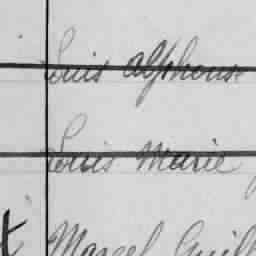 Louis Alphonse
Louis Marie
Marcel